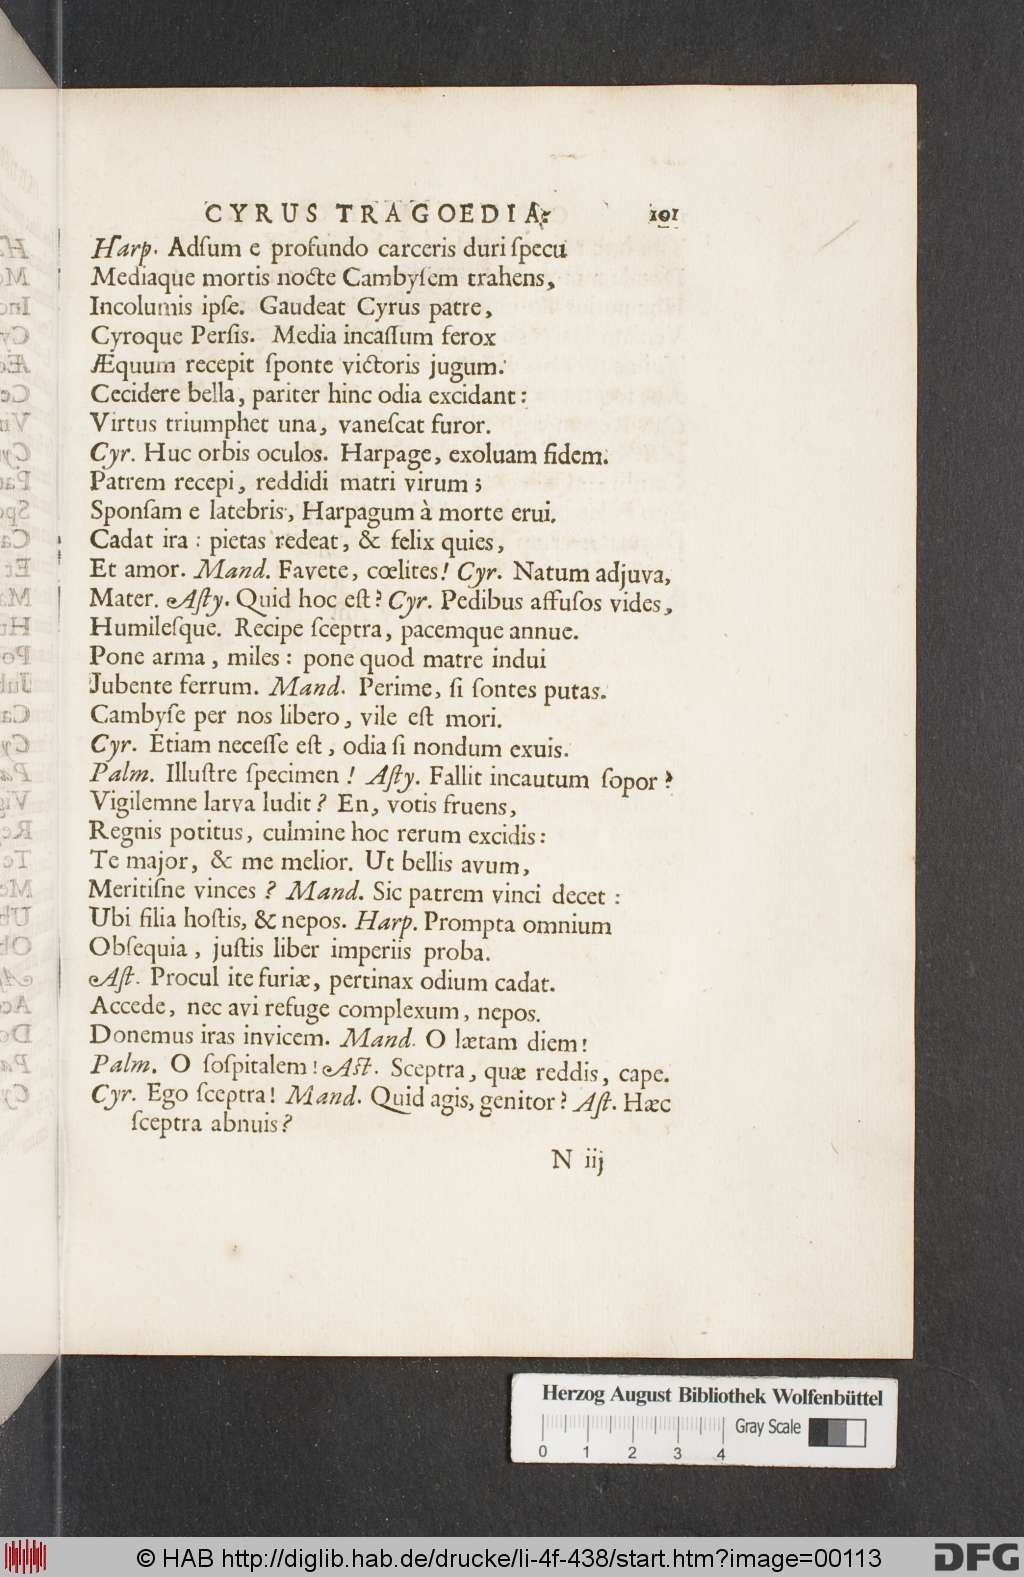 CYRUS TRAGOEDIA. 101
Harp. Adſum e profundo carceris duri ſpecu
Mediaque mortis nocte Cambyſem trahens,
Incolumis ipſe. Gaudeat Cyrus patre,
Cyroque Perſis. Media incaſſum ferox
Æquum recepit ſponte victoris jugum.
Cecidere bella, pariter hinc odia excidant:
Virtus triumphet una, vaneſcat furor.
Cyr. Huc orbis oculos. Harpage, exoluam fidem.
Patrem recepi, reddidi matri virum;
Sponſam e latebris, Harpagum à morte erui.
Cadat ira: pietas redeat, & felix quies,
Et amor. Mand. Favete, cœlites! Cyr. Natum adjuva,
Mater. Aſty. Quid hoc eſt? Cyr. Pedibus affuſos vides,
Humileſque. Recipe ſceptra, pacemque annue.
Pone arma, miles: pone quod matre indui
Jubente ferrum. Mand. Perime, ſi ſontes putas.
Cambyſe per nos libero, vile eſt mori.
Cyr. Etiam neceſſe eſt, odia ſi nondum exuis.
Palm. Illuſtre ſpecimen! Aſty. Fallit incautum ſopor?
Vigilemne larva ludit? En, votis fruens,
Regnis potitus, culmine hoc rerum excidis:
Te major, & me melior. Ut bellis avum,
Meritiſne vinces? Mand. Sic patrem vinci decet:
Ubi filia hoſtis, & nepos. Harp. Prompta omnium
Obſequia, juſtis liber imperiis proba.
Aſt. Procul ite furiæ, pertinax odium cadat.
Accede, nec avi refuge complexum, nepos.
Donemus iras invicem. Mand. O lætam diem!
Palm. O ſoſpitalem! Aſt. Sceptra, quæ reddis, cape.
Cyr. Ego ſceptra! Mand. Quid agis, genitor? Aſt. Hæc
ſceptra abnuis?
N iij
Herzog August Bibliothek Wolfenbüttel
Gray Scale
0 1 2 3 4
© HAB http://diglib.hab.de/drucke/li-4f-438/start.htm?image=00113
DFG